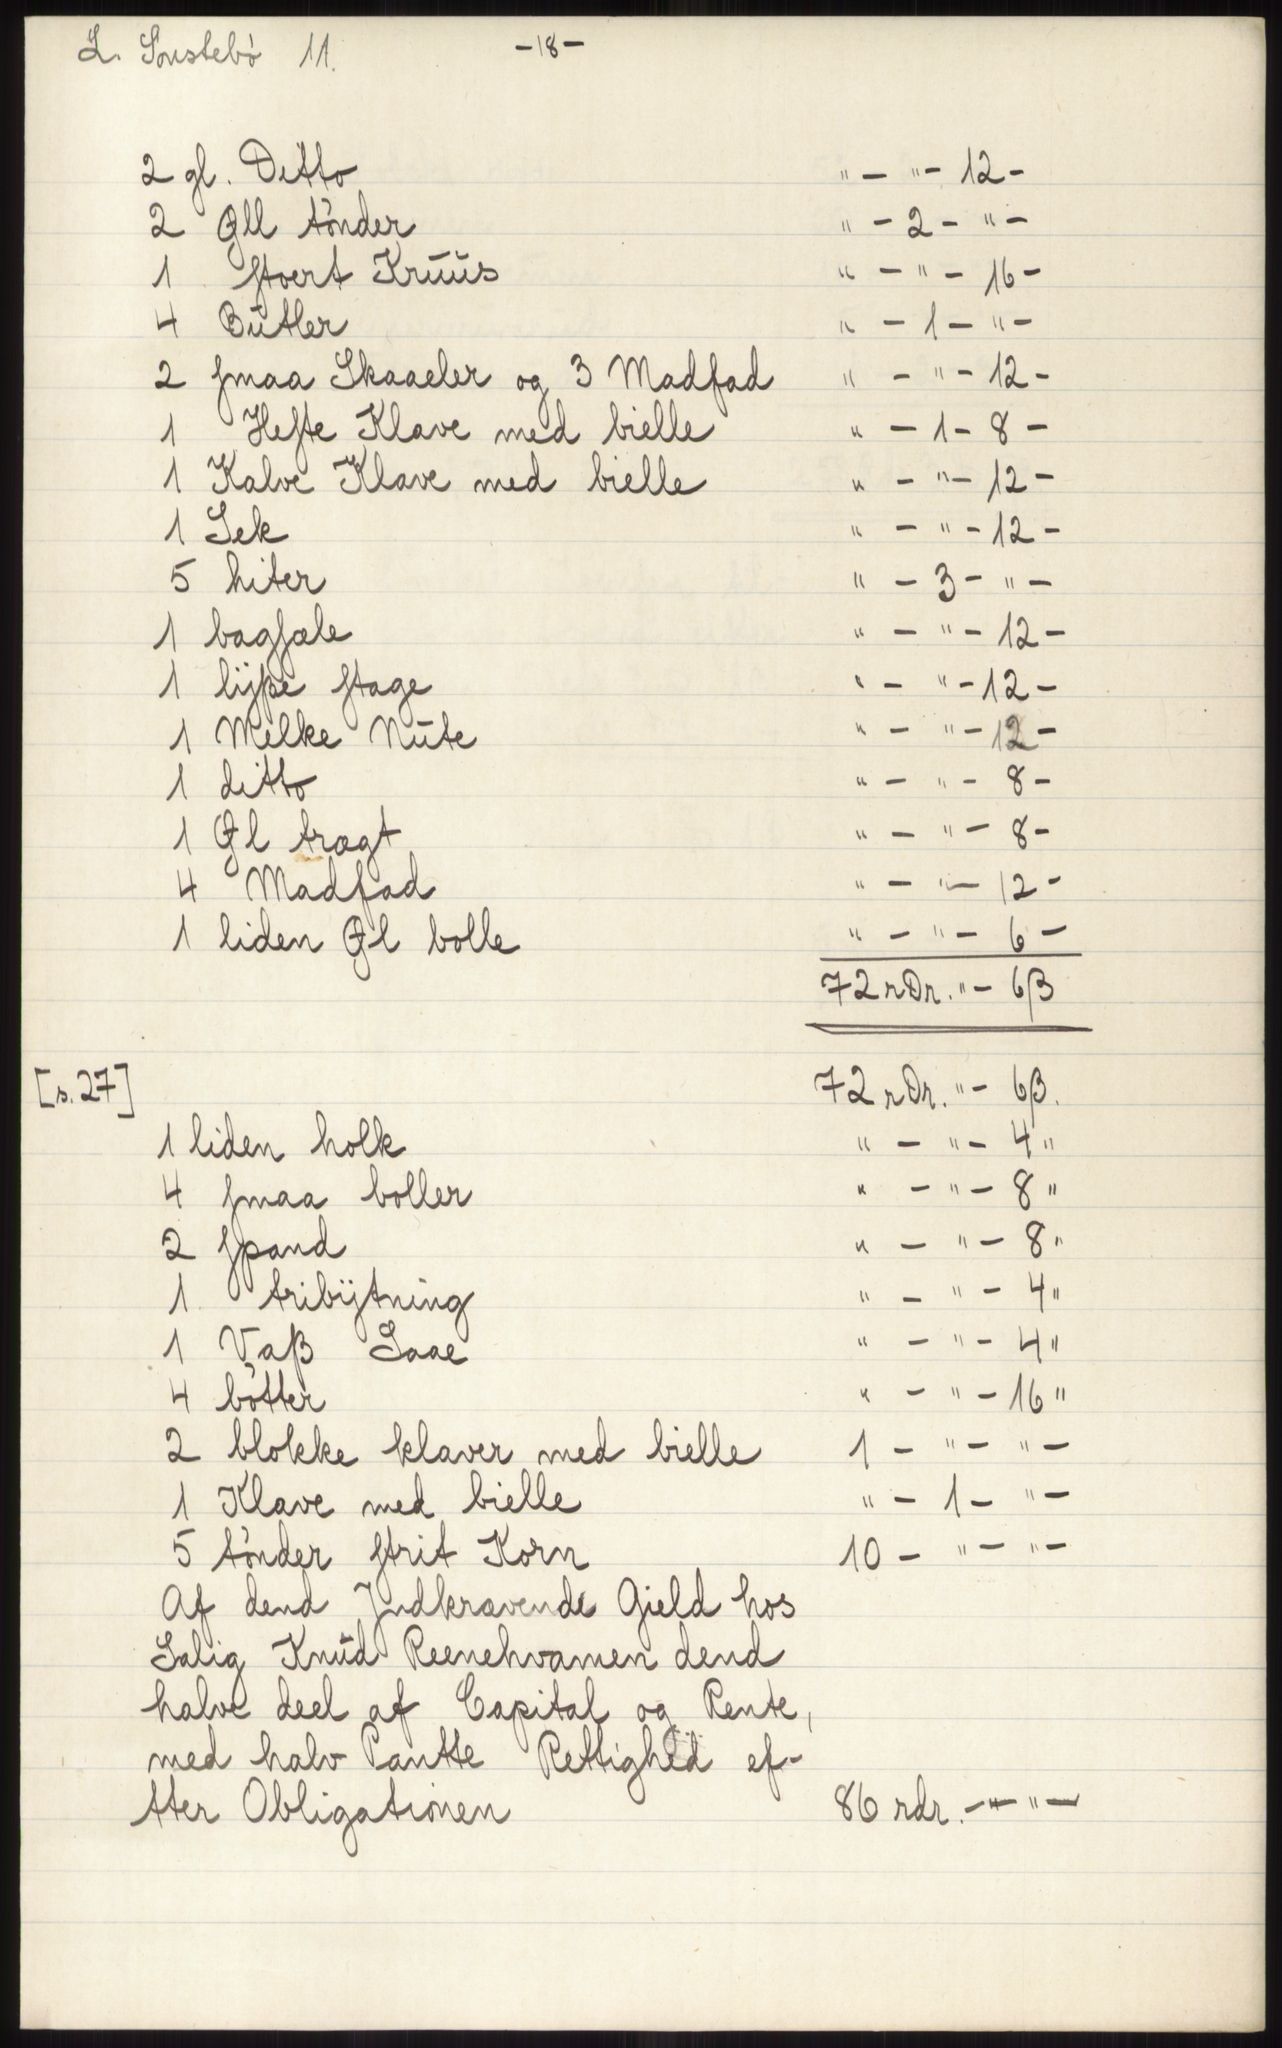 L. Sønstebø 11. -18-
2 gl. Ditto " - " - 12 -
2 Øll tønder " - 2 - " -
1 stoert Kruus " - " - 16 -
4 Butler " - 1 - " -
2 smaa Skaaeler og 3 Madfad " - " - 12 -
1 Heste Klave med bielle " - 1 - 8 -
1 Kalve Klave med bielle " - " - 12 -
1 Sek " - " - 12 -
5 hiter " - 3 - " -
1 bagfæle " - " - 12 -
1 lyse stage " - " - 12 -
1 Melke Nute " - " - 12 -
1 ditto " - " - 8 -
1 Øl tragt " - " - 8 -
4 Madfad " - " - 12 -
1 liden Øl bolle " - " - 6 -
72 rDr. " - 6β
[s. 27] 72 rDr. " - 6β.
1 liden holk " - " - 4 "
4 smaa boller " - " - 8 "
2 spand " - " - 8 "
1 tribytning " - " - 4 "
1 Vaß Saae " - " - 4 "
4 bøtter " - " - 16 "
2 blokke klaver med bielle 1 - " - " -
1 Klave med bielle " - 1 - " -
5 tønder strit Korn 10 - " - " -
Af dend Indkrævende Gield hos
Salig Knud Reenehvamen dend
halve deel af Capital og Rente,
med halv Pantte Rettighed ef-
tter Obligationen 86 rdr. - " - " -